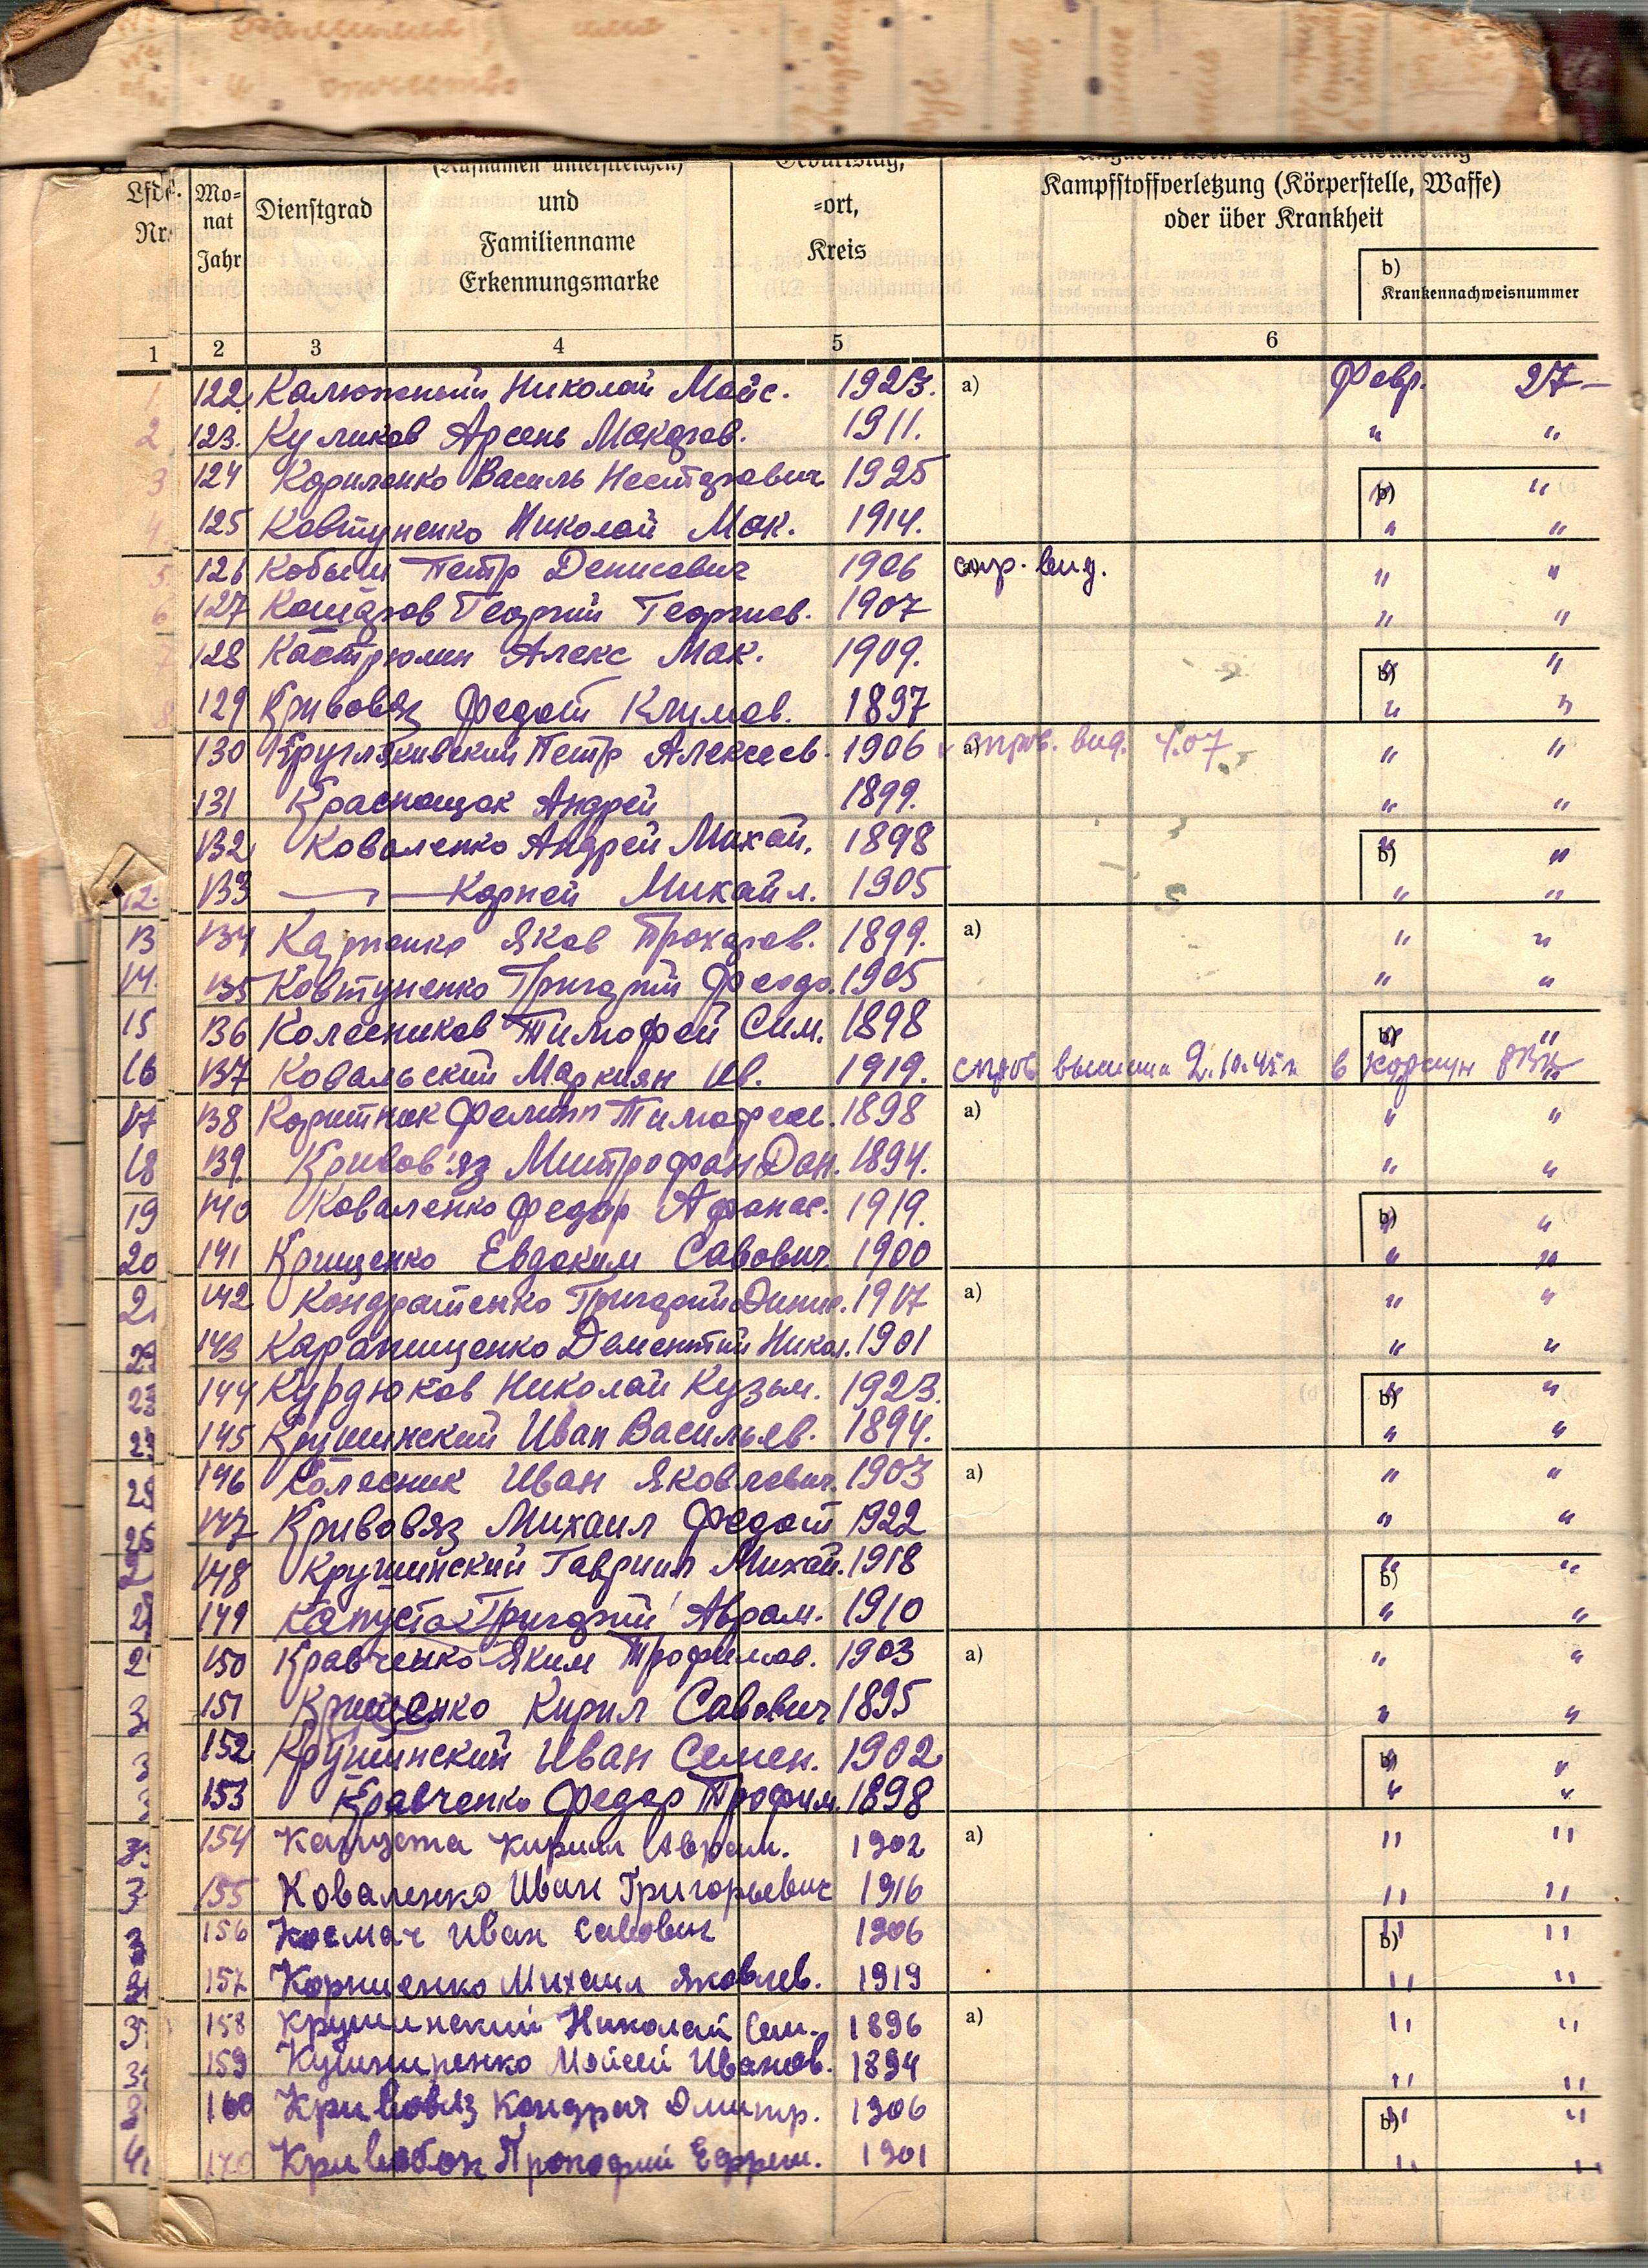 Lfde. Nr.
Mo-
nat
Jahr
Dienstgrad
(Rufnamen unterstreichen)
und
Familienname
Erkennungsmarke
Geburtstag,
=ort,
Kreis
Kampfstoffverletzung (Körperstelle, Waffe)
oder über Krankheit
b)
Krankennachweisnummer
1 2 3 4 5 6
1 122. Калюжный Николай Мойс. 1923. a) Февр. 27-
2 123. Куликов Арсень Макаров. 1911. " "
3 124 Кориленко Василь Несторович 1925 b) " "
4 125 Ковтуненко Николай Мак. 1914. " "
5 126 Петр Денисович 1906 a) " "
6 127 Кошаров Георгий Георгиев. 1907 " "
7 128 Костромин Алекс Мак. 1909. b) " "
8 129 Кривовяз Федот Климов. 1897 " "
130 Петр Алексеев. 1906 a) вид. " "
131 Краснощок Андрей 1899. " "
132 Коваленко Андрей Михай. 1898 b) " "
12. 133 — " — Корней Михайл. 1905 " "
13 134 Яков Прохоров. 1899. a) " "
14. 135 Ковтуненко Григорий Феодо. 1905 " "
15 136 Колесников Тимофей Сим. 1898 b) " "
16 137 Ковальский Маркиян Ив. 1919. в Корсун РВК
17 138 Коритнок Филипп Тимофеев. 1898 a) " "
18 139. Кривов'яз Митрофан Дан. 1894. " "
19 140 Коваленко Федор Афанас. 1919. b) " "
20 141 Крищенко Евдоким Савович 1900 " "
142 Кондратенко Григорий 1917 a) " "
143 Карапищенко Дементий Никол. 1901 " "
23 144 Курдюков Николай Кузьм. 1923. b) " "
145 Крушинский Иван Васильев. 1894. " "
146 Колесник Иван Яковлевич. 1903 a) " "
147 Кривовяз Михаил Федот 1922 " "
148 Крушинский Гавриил Михай. 1918 b) " "
149 Капуста Григорий Аврам. 1910 " "
150 Кравченко Яким Трофимов. 1903 a) " "
151 Крищенко Кирил Савович 1895 " "
152 Крушинский Иван Семен. 1902 b) " "
153 Кравченко Федор Трофим. 1898 " "
154 Капуста Кирилл Аврам. 1902 a) " "
155 Коваленко Иван Григорьевич 1916 " "
156 Космач Иван Савович 1906 b) " "
157 Корниенко Михаил Яковлев. 1919 " "
158 Крушинский Николай Сем. 1896 a) " "
159 Кушниренко Мойсей Иванов. 1894 " "
160 Кривовяз Кондрат Дмитр. 1906 b) " "
170 Кривобок Прокофий Ефрем. 1901 " "